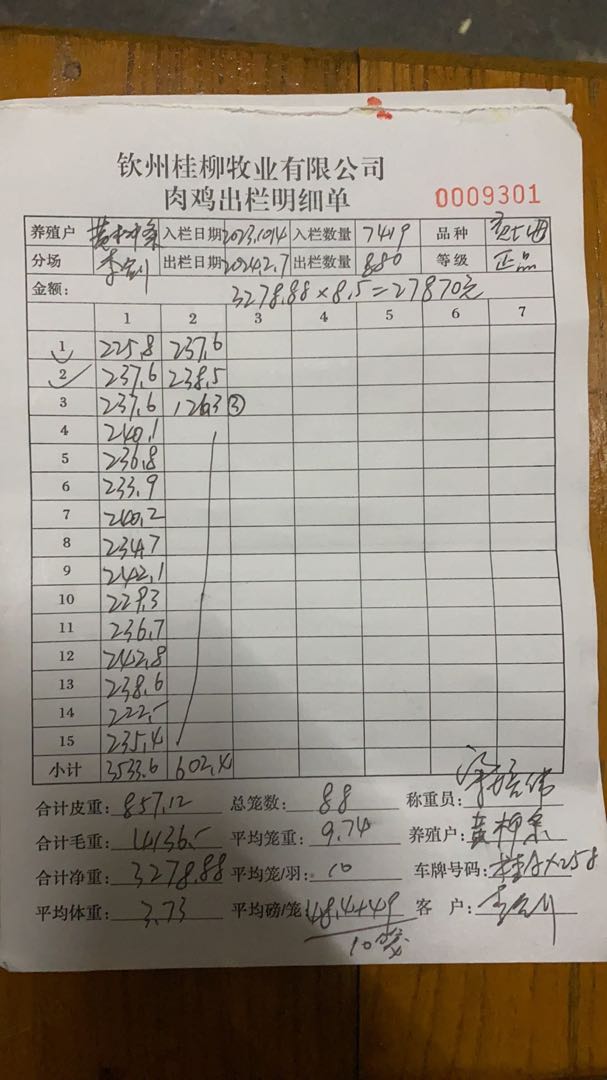 钦州桂柳牧业有限公司
肉鸡出栏明细单 0009301
养殖户 入栏日期 2023.10.14 入栏数量 7419 品种
分场 出栏日期 2024.2.7 出栏数量 880 等级 正品
金额: 3278.88×8.5=27870元
1 2 3 4 5 6 7
1 225.8 237.6
2 237.6 238.5
3 237.6 126.3 ③
4 240.1
5 236.8
6 233.9
7 240.2
8 234.7
9 242.1
10 229.3
11 236.7
12 242.8
13 238.6
14 222.-
15 235.4
小计 3533.6 602.4
合计皮重: 857.12 总笼数: 88 称重员:
合计毛重: 4136.- 平均笼重: 9.74 养殖户: 黄
合计净重: 3278.88 平均笼/羽: 10 车牌号码: 桂A×258
平均体重: 3.73 平均磅/笼: 48.4+49 客 户:
10笼